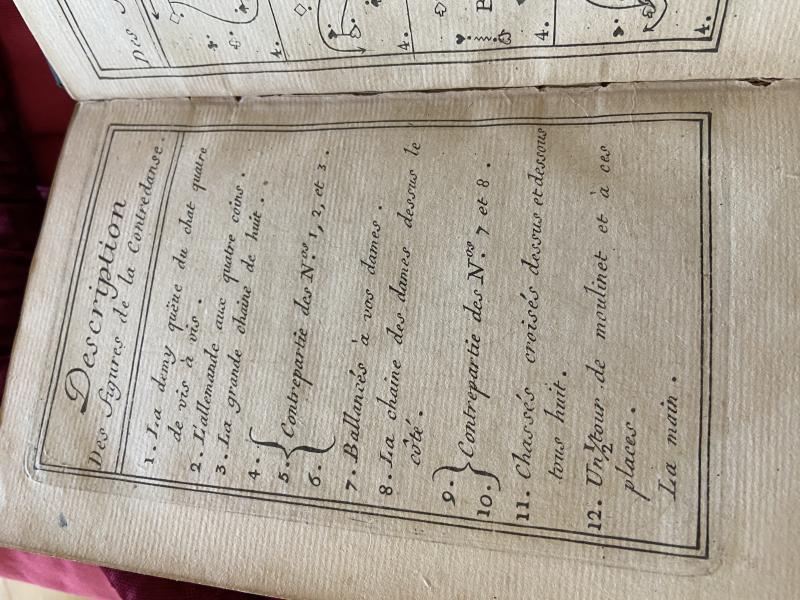 Description
Des figures de la Contredanse.
1. La demy queüe du chat quatre
de vis à vis.
2. L'allemande aux quatre coins.
3. La grande chaine de huit..
4.
5. Contrepartie des Nos. 1, 2, et 3.
6.
7. Ballancés à vos dames.
8. La chaine des dames dessus le
côté.
9.
10. Contrepartie des Nos. 7 et 8.
11. Chassés croisés dessus et dessous
tous huit.
12. Un ½ tour de moulinet et à ces
places.
La main.
Des
4.
4.
4.
4.